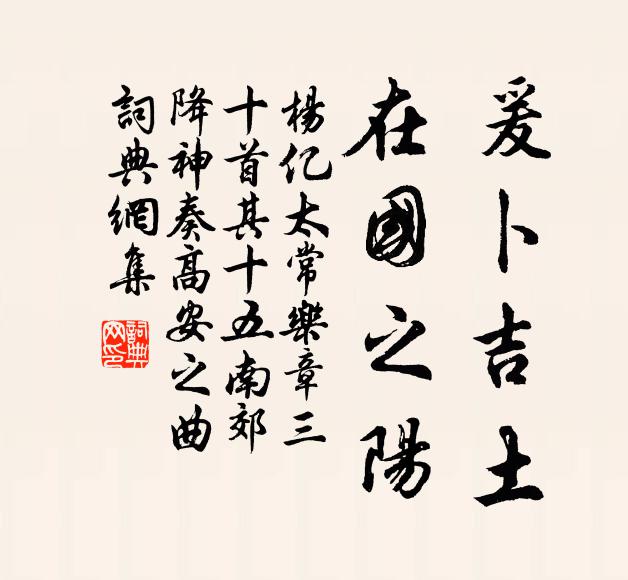 爰卜吉土
在國之陽
楊亿太常樂章三
十首其十五南郊
降神奏高安之曲
詞典網集
詞典
网印